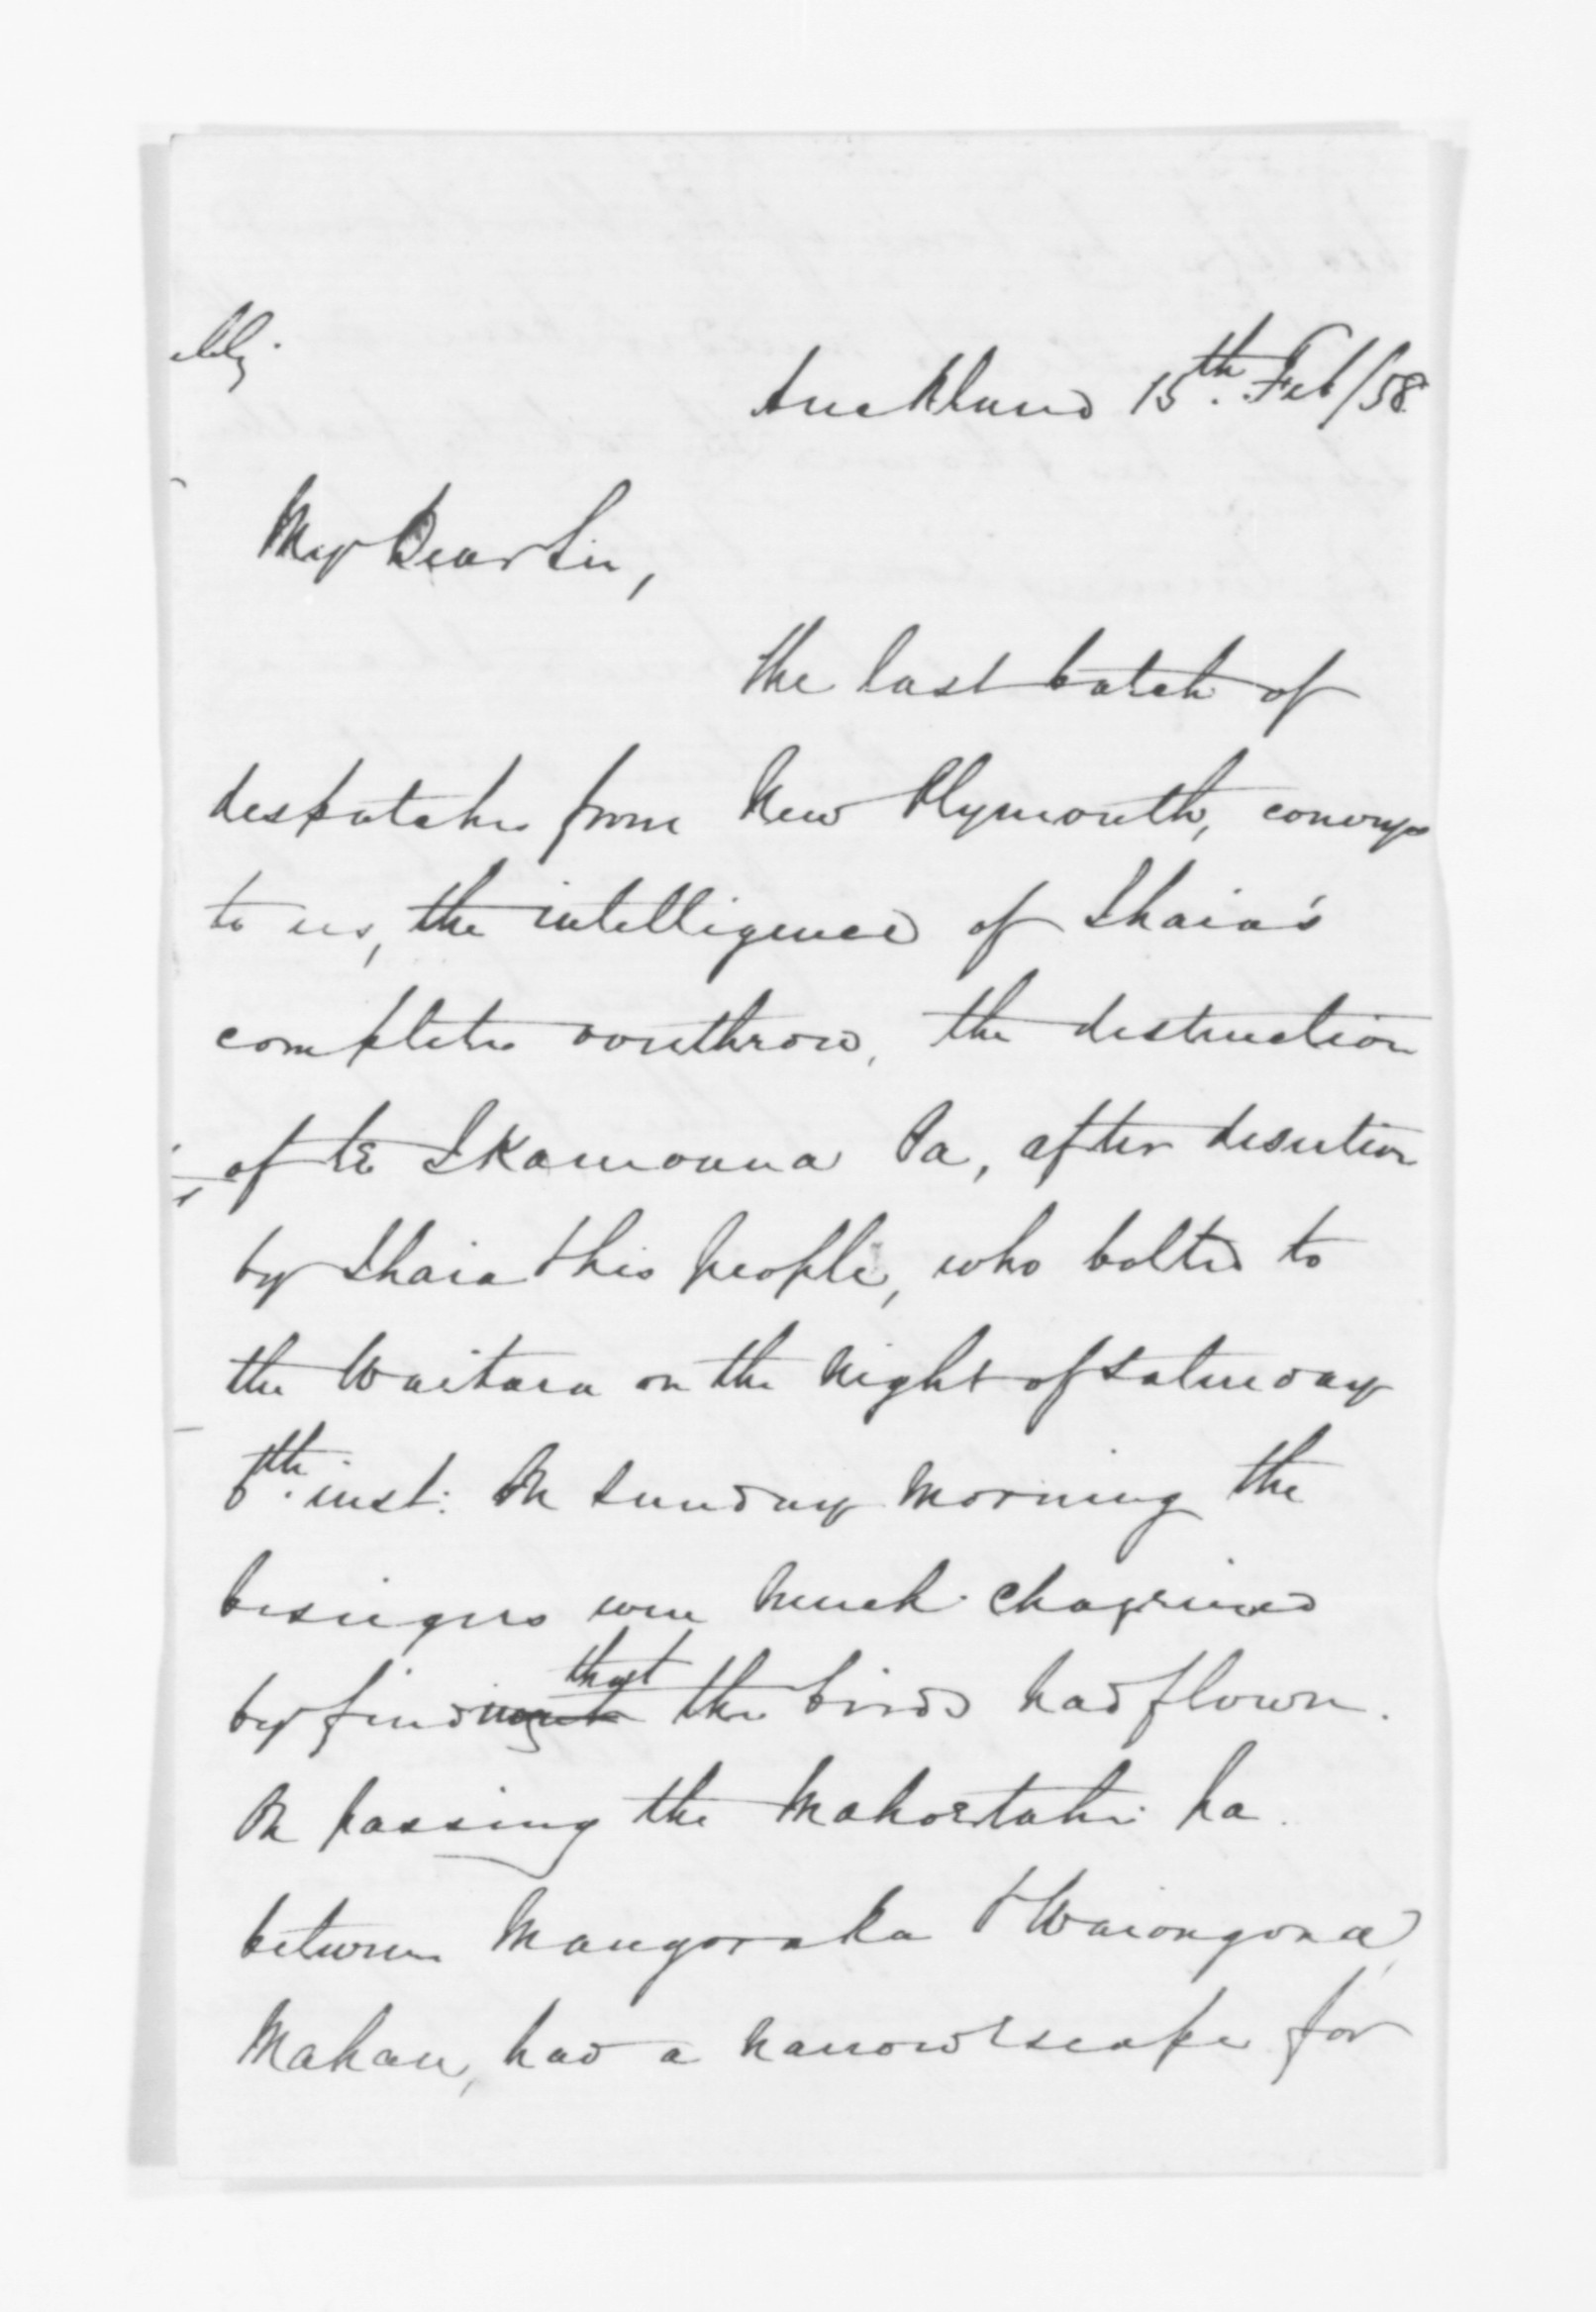 Auckland 15th. Feb/58
My Dear Sir,
The last batch of
despatches from New Plymouth, conveys
to us, the intelligence of Ihaia's
complete overthrow, the destruction
of te Ikamoana Pa, after desertion
by Ihaia & his people, who bolted to
the Waitara on the night of Saturday
6th. inst. On Sunday morning the
besiegers were much chagrined
by finding that the birds had flown.
On passing the Mahoetahi pa
between Mangoraka & Waiongona,
Mahau, had a narrow escape for